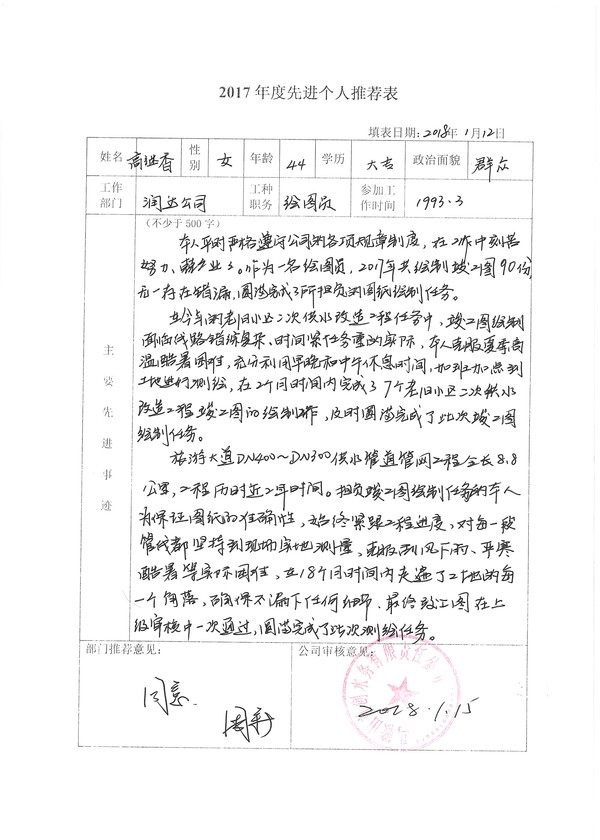 2017 年度先进个人推荐表
填表日期: 2018年 1月 12日
姓名 高继香 性别 女 年龄 44 学历 大专 政治面貌 群众
工作部门 润达公司 工种职务 绘图员 参加工作时间 1993.3
主要先进事迹
(不少于 500 字)
本人平时严格遵守公司的各项规章制度,在工作中刻苦
努力、 作为一名绘图员,2017年共绘制竣工图90份
无一存在错漏,圆满完成了所担负的图纸绘制任务。
在今年的老旧小区二次供水改造工程任务中,竣工图绘制
面临线路错综复杂、时间紧任务重的实际,本人克服夏季高
温酷暑困难,充分利用早晚和中午休息时间,加班加点到
工地进行测绘,在2个月时间内完成了7个老旧小区二次供水
改造工程竣工图的绘制工作,及时圆满完成了此次竣工图
绘制任务。
旅游大道DN400~DN300供水管道管网工程全长8.8
公里,工程历时近2年时间。担负竣工图绘制任务的本人
为保证图纸的准确性,始终紧跟工程进度,对每一段
管线都坚持到现场实地测量,克服刮风下雨、严寒
酷暑等实际困难,在18个月时间内走遍了工地的每
一个角落,确保不漏下任何细节,最终竣工图在上
级审核中一次通过,圆满完成了此次测绘任务。
部门推荐意见:
同意.
公司审核意见:
水务有限责任
2018.1.15